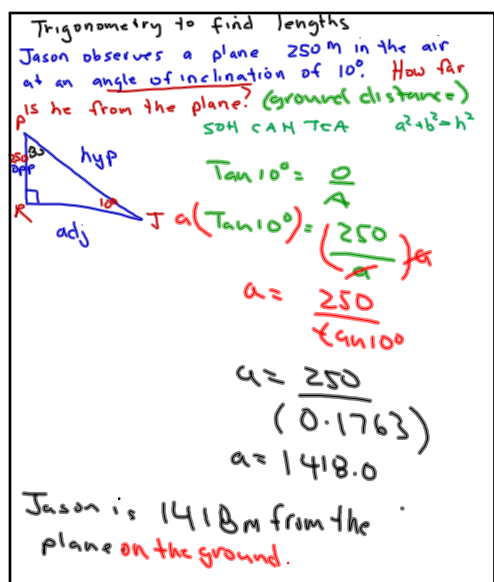 Trigonometry to find lengths
Jason observes a plane 250 m in the air
at an angle of inclination of 10°. How far
is he from the plane? (ground distance)
SOH CAH TOA a²+b²=h²
P
250
opp
hyp
10°
R
J
adj
Tan 10° = O/A
a(Tan 10°) = (250/a)a
a = 250/tan 10°
a = 250/(0.1763)
a = 1418.0
Jason is 1418m from the
plane on the ground.